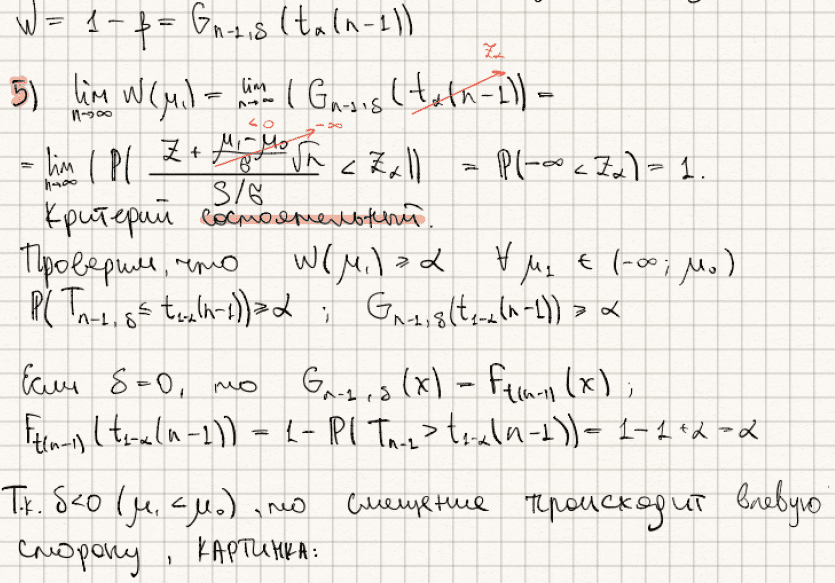 W = 1 - β = G_{n-1,δ}(t_α(n-1))
z_α
5) lim_{n→∞} W(μ₁) = lim_{n→∞} (G_{n-1,δ}(t_α(n-1)) =
<0 -∞
= lim_{n→∞} (P( (Z + (μ₁-μ₀)/σ √n) / (S/σ) < z_α)) = P(-∞ < z_α) = 1.
Критерий состоятельный.
Проверим, что W(μ₁) ≥ α ∀ μ₁ ∈ (-∞; μ₀)
P(T_{n-1,δ} ≤ t_{1-α}(n-1)) ≥ α ; G_{n-1,δ}(t_{1-α}(n-1)) ≥ α
Если δ=0, то G_{n-1,δ}(x) = F_{t(n-1)}(x) ;
F_{t(n-1)}(t_{1-α}(n-1)) = 1 - P(T_{n-1} > t_{1-α}(n-1)) = 1-1+α = α
Т.к. δ<0 (μ₁<μ₀), то смещение происходит влевую
сторону, КАРТИНКА: